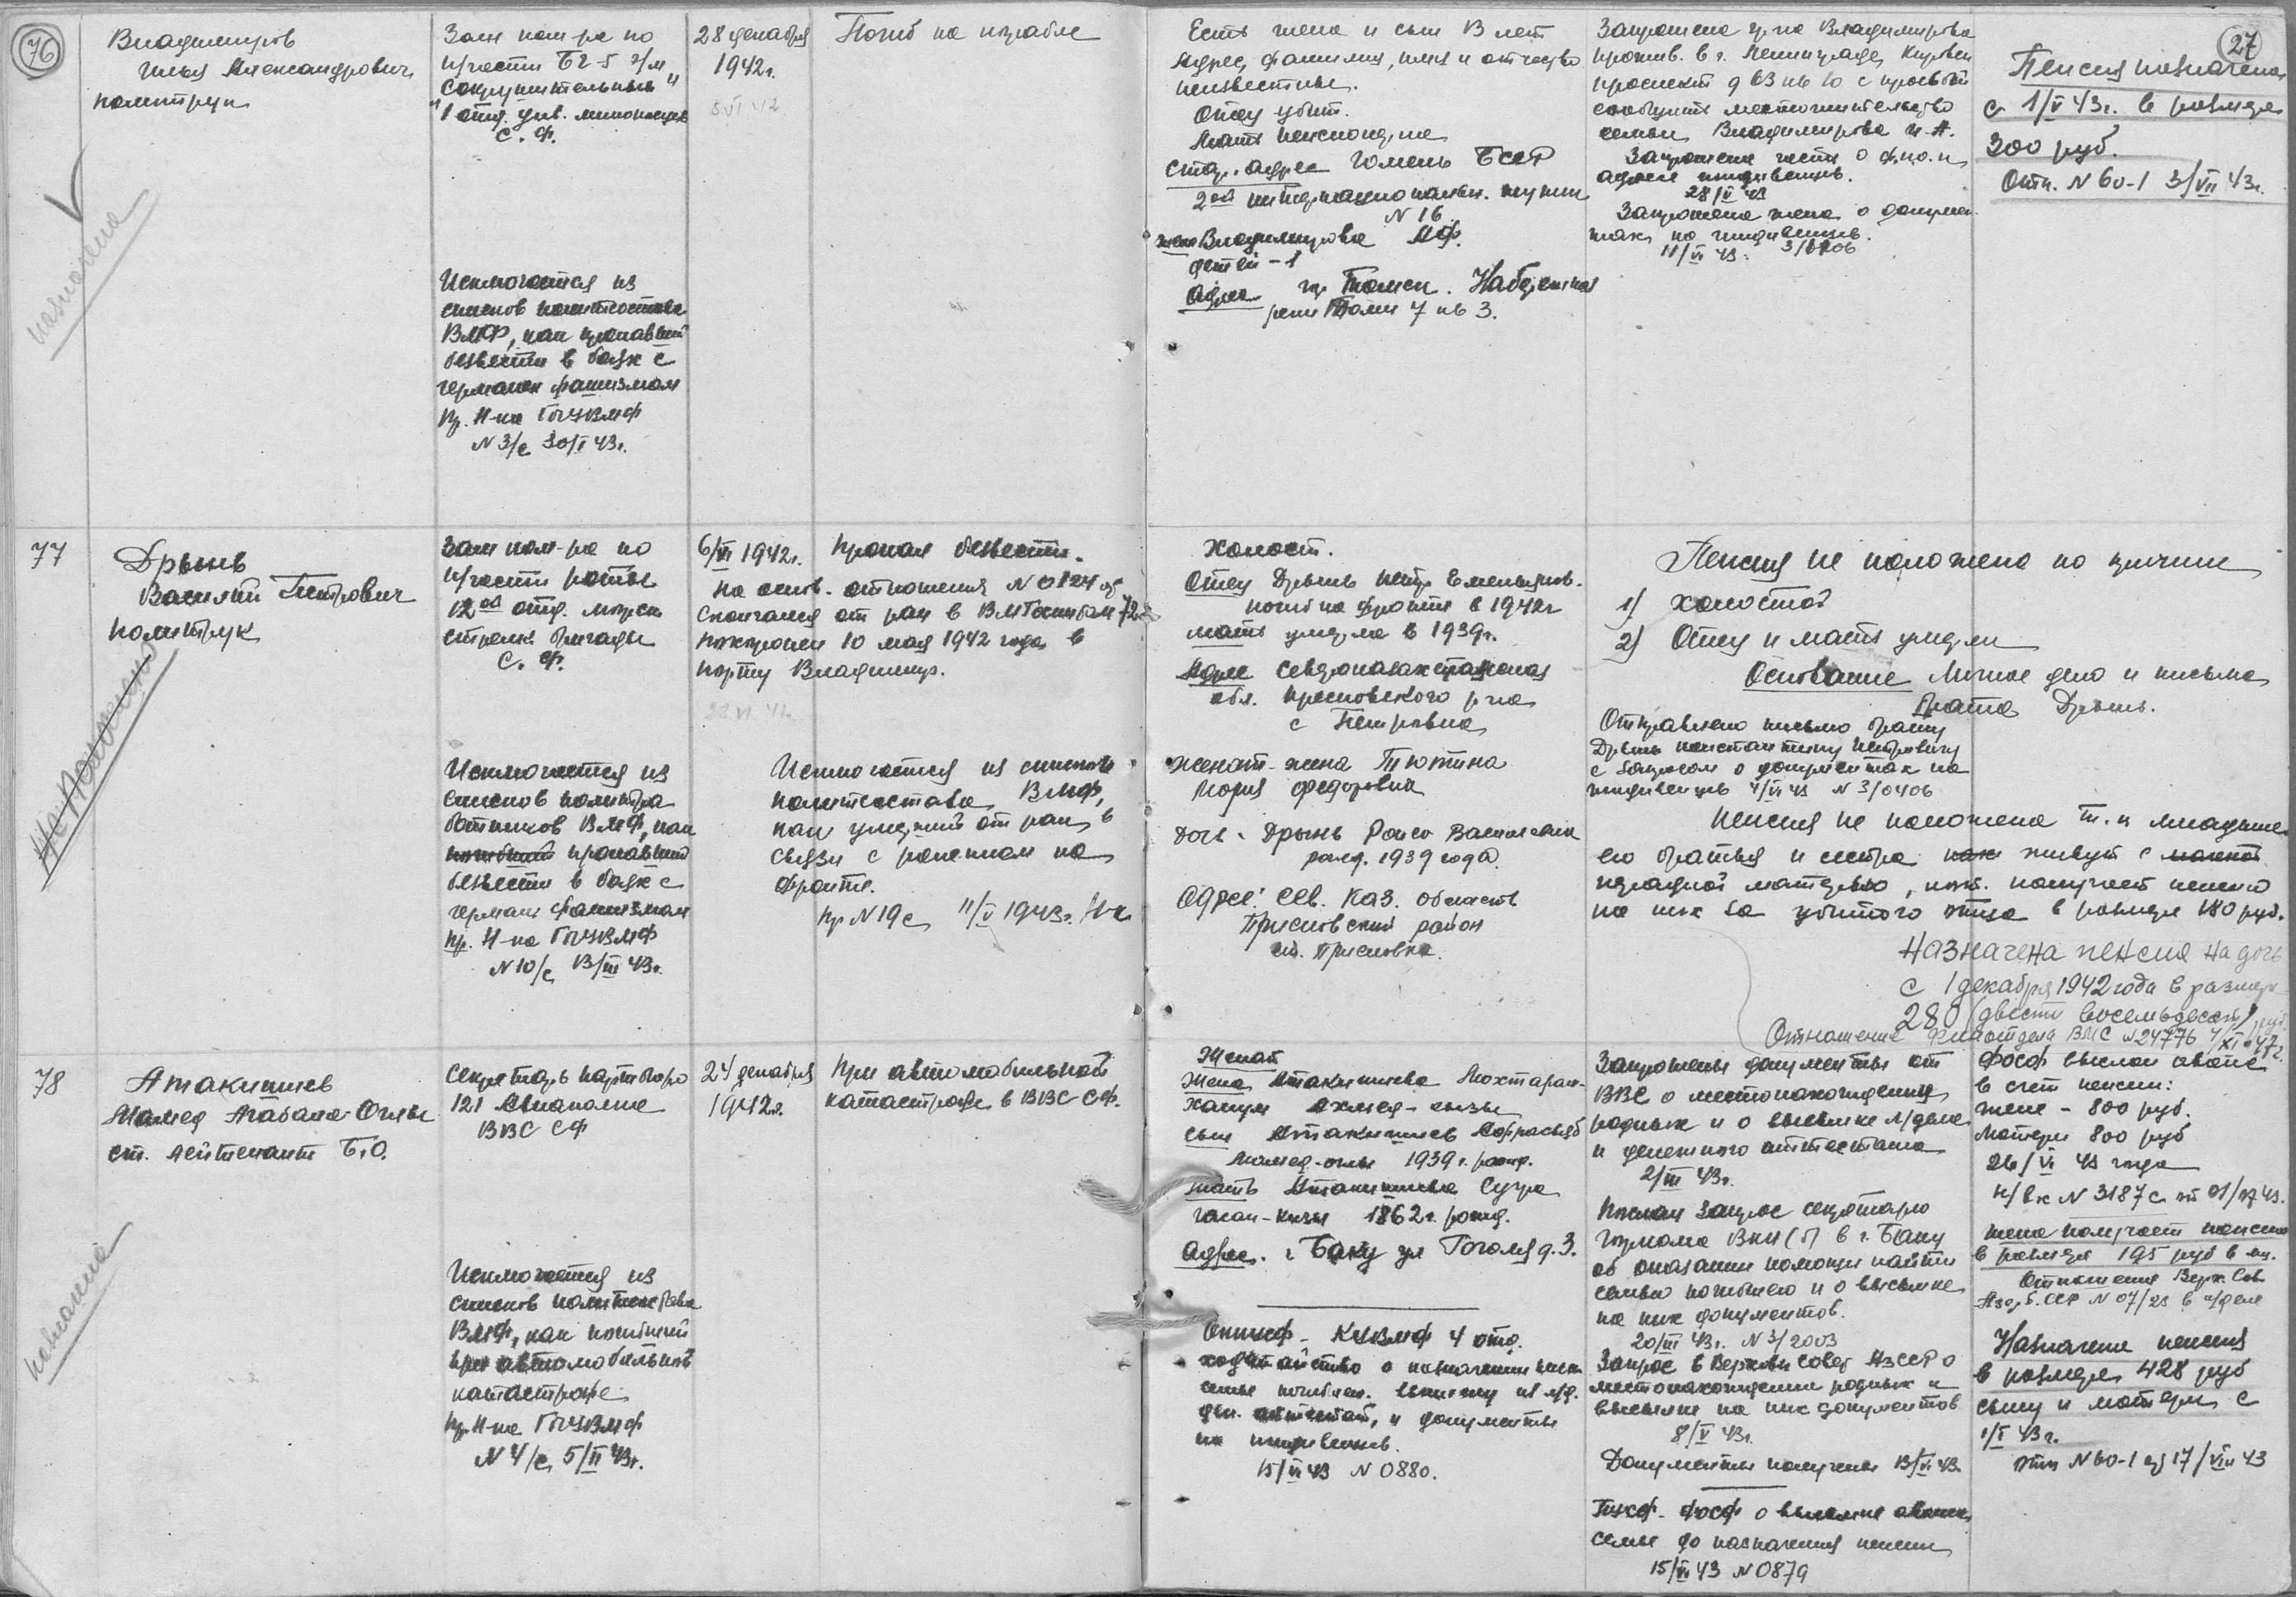 76
Владимиров
Илья Александрович
политрук
назначена
Зам ком-ра по
п/части БЧ-5 э/м
"Сокрушительный"
1 отд. див. миноносцев
С. Ф.
Исключается из
списков политсостава
ВМФ, как пропавший
безвести в боях с
германск фашизмом
Пр. Н-ка ГПУВМФ
N 3/с 30/I 43г.
28 декабря
1942г.
Погиб на корабле
Есть жена и сын 3 лет
Адрес, фамилия, имя и отчество
неизвестны.
Отец убит.
Мать пенсионерка
Стар. адрес Гомель БССР
2ой интернациональн. тупик
N 16
жена Владимирова М.Ф.
детей - 1
Адрес гор Томск. Набережная
реки Томи 7 кв 3.
Запрошена гр-ка Владимирова
прожив. в г. Ленинграде, Кировск
проспект д 63 кв 10 с просьбой
сообщить местожительство
семьи Владимирова И.А.
Запрошена часть о ф.и.о. и
адресе иждивенцев.
28/V 43
Запрошена жена о докумен
тах на иждивенцев.
11/VI 43. 3/0406
27
Пенсия назначена
с 1/V 43г. в размере
300 руб.
Отн. N 60-1 3/VII 43г.
77
Дрынь
Василий Петрович
политрук
Не положено
Зам ком-ра по
п/части роты
12ой отд. морск
стрелк бригады
С. Ф.
Исключается из
списков политра
ботников ВМФ, как
погибший пропавший
безвести в боях с
герман фашизмом
Пр. Н-ка ГПУВМФ
N 10/с 13/III 43г.
6/VI 1942г. Пропал безвести.
На основ. отношения N 0124 об
скончался от ран в ВМГоспитале 72
похоронен 10 мая 1942 года в
порту Владимир.
Исключается из списков
политсостава ВМФ,
как умерший от ран, в
связи с ранением на
фронте.
Пр N 19с 11/V 1943г.
Холост.
Отец Дрынь Петр Емельянов.
погиб на фронте в 1942г
мать умерла в 1939г.
Адрес Северо-казахстанская
обл. Пресновского р-на
с Петровка
женат - жена Тютина
Мария Федоровна
Дочь - Дрынь Раиса Васильевна
рожд. 1939 года.
Адрес: Сев. Каз. область
Пресновский район
ст. Пресновка.
Пенсия не положена по причине
1) холостой
2) Отец и мать умерли
Основание Личное дело и письма
брата Дрынь.
Отправлено письмо брату
Дрынь Константину Петровичу
с запросом о документах на
иждивенцев 4/VI 43 N 3/0406
Пенсия не положена т.к младшие
его братья и сестра живут с
неродной матерью, кот. получает пенсию
на них за убитого отца в размере 180 руб.
Назначена пенсия на дочь
с 1 декабря 1942 года в размере
280 (двести восемьдесят) руб
Отношение Финотдела ВМС N 24776 4/XI-47г.
78
Атакишиев
Мамед Агабала-Оглы
ст. лейтенант Б.О.
назначена
Секретарь партбюро
121 Авиаполка
ВВС СФ
Исключается из
списков политсостава
ВМФ, как погибший
при автомобильной
катастрофе
Пр. Н-ка ГПУВМФ
N 4/с 5/II 43г.
24 декабря
1942г.
При автомобильной
катастрофе в ВВС СФ.
Женат
Жена Атакишиева Мохтарам-
Ханум Ахмед-кызы
сын Атакишиев
Мамед-оглы 1939 г. рожд.
мать Атакишиева Сугра
Гасан-кызы 1862 г. рожд.
Адрес. г. Баку ул Гоголя д. 3.
КУВМФ 4 отд.
ходатайство о назначении пенс
семье погибшего. выписку из л/д.
ден. аттестат, и документы
на иждивенцев.
15/VI 43 N 0880.
Запрошены документы от
ВВС о местонахождении
родных и о высылке л/дела
и денежного аттестата
2/III 43г.
Послан запрос секретарю
горкома ВКП(б) в г. Баку
об оказании помощи найти
семью погибшего и о высылке
на них документов.
20/III 43г. N 3/2003
Запрос в Верховн Совет АзССР о
местонахождении родных и
высылке на них документов
8/V 43г.
Документы получены 13/VI 43.
ФОСФ о высылке аванса
семье до назначения пенсии
15/VI 43 N 0879
ФОСФ выслал аванс
в счет пенсии:
жене - 800 руб.
Матери 800 руб
26/VI 43 года
N 3187с
жена получает пенсию
в размере 195 руб в м-ц.
Отношения Верх. Сов.
Азерб. ССР N 07/23 в л/деле
Назначена пенсия
в размере 428 руб
сыну и матери с
1/I 43 г.
отн N 60-1 от 17/VIII 43